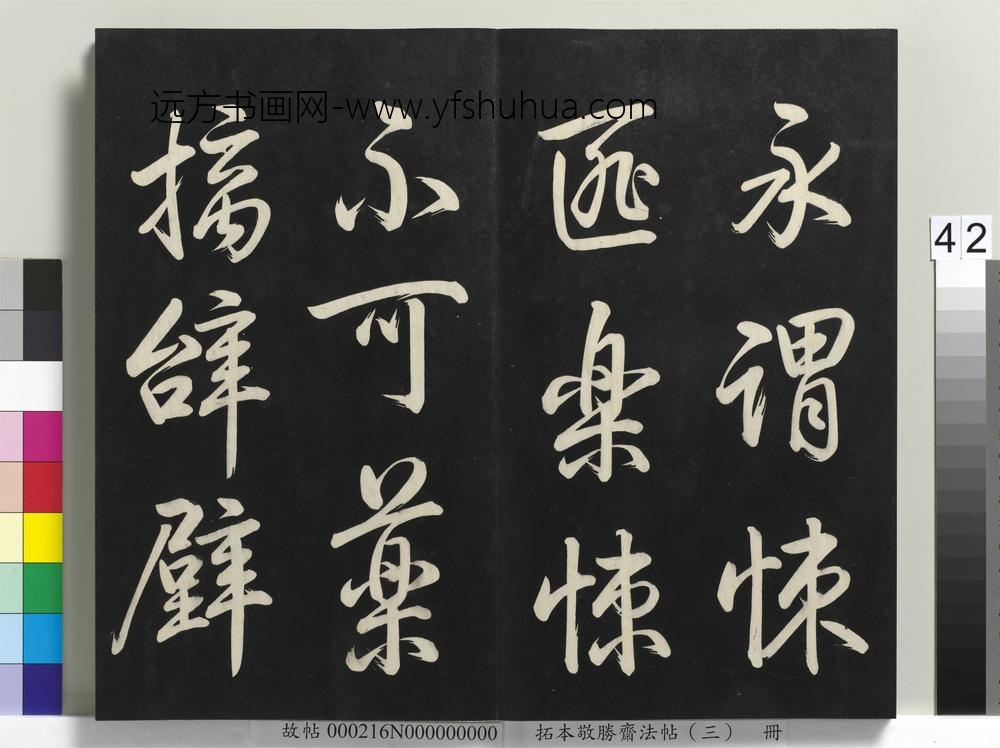 远方书画网-www.yfshuhua.com
永謂悚
匪樂悚
不可藥
摛辭壁
42
故帖 000216N000000000 拓本敬勝齋法帖（三） 冊